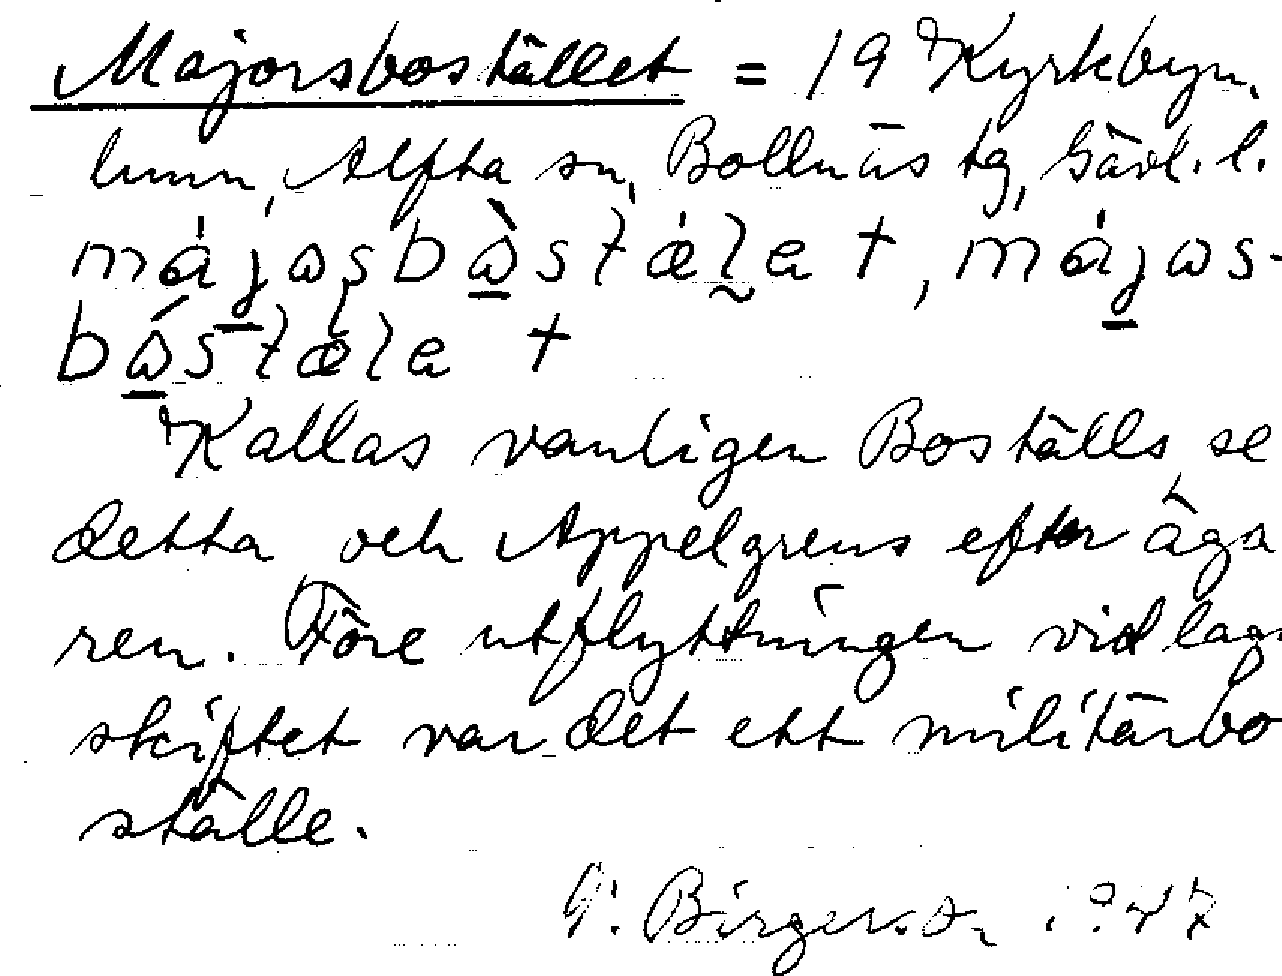 Majorsbostället = 19 Kyrkbyn,
Lunn, Alfta sn, Bollnäs tg, Gävl. l.
májɷsbɷ̀stǽlet, májɷs-
bɷ́stǽlet
Kallas vanligen Boställs, se
detta och Appelgrens efter äga
ren. Före utflyttningen vid laga
skiftet var det ett militärbo
ställe.
G. Birgerson 1947